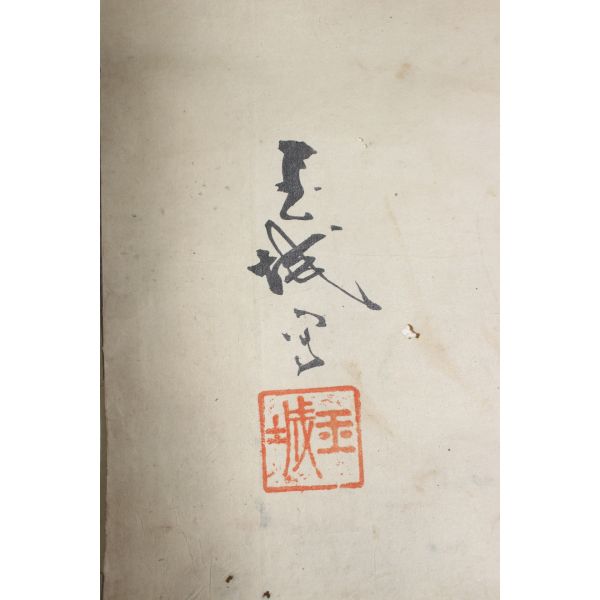 玉城寫
玉城